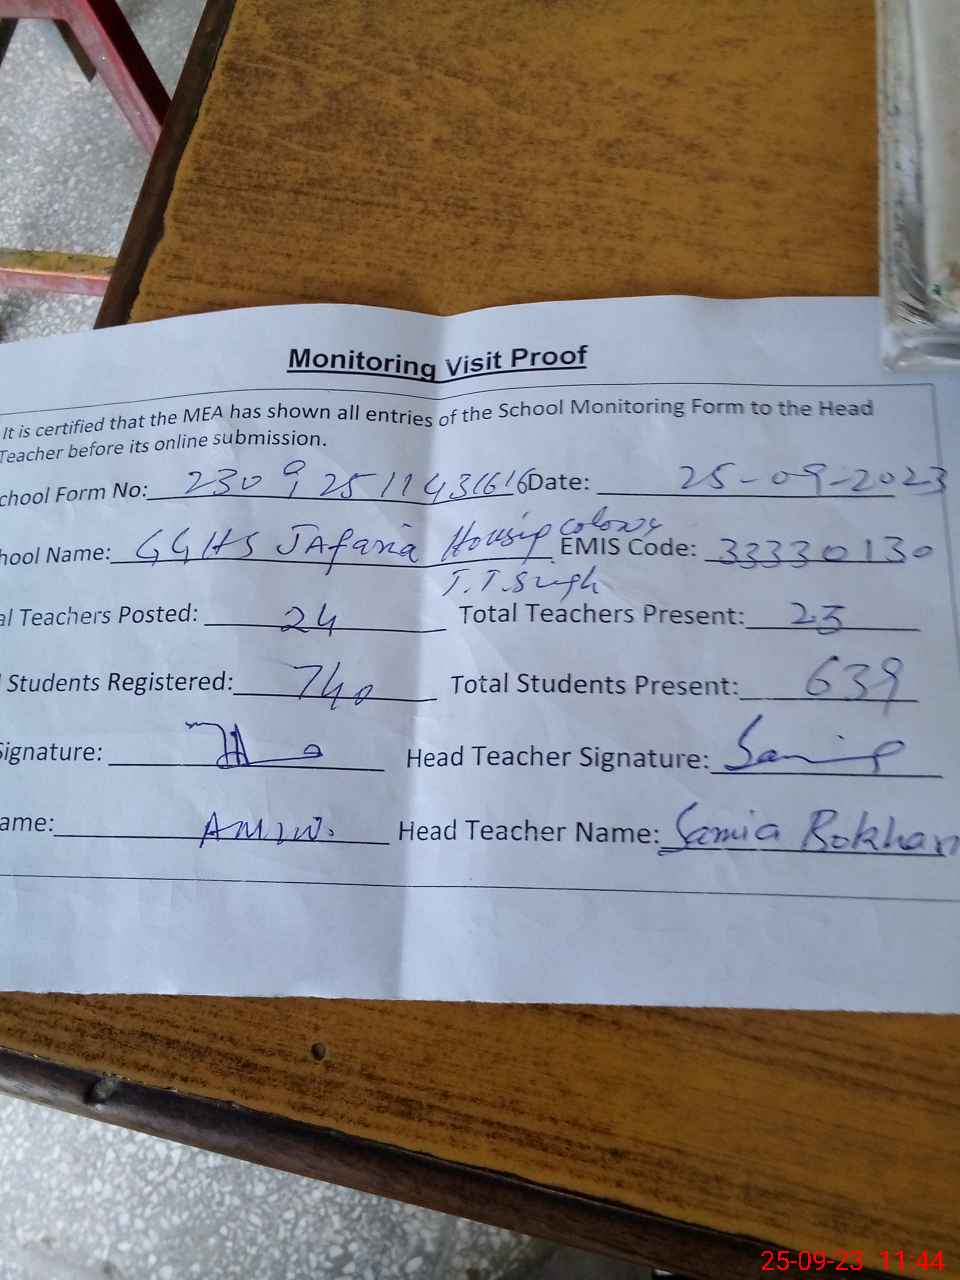 Monitoring Visit Proof
It is certified that the MEA has shown all entries of the School Monitoring Form to the Head
Teacher before its online submission.
chool Form No: 23092511431616 Date: 25-09-2023
hool Name: GGHS JAfaria Housing colony EMIS Code: 33330130
T.T.Singh
al Teachers Posted: 24 Total Teachers Present: 23
Students Registered: 740 Total Students Present: 639
Signature: Head Teacher Signature:
ame: AMIN. Head Teacher Name: Samia Bokhari
25-09-23 11:44